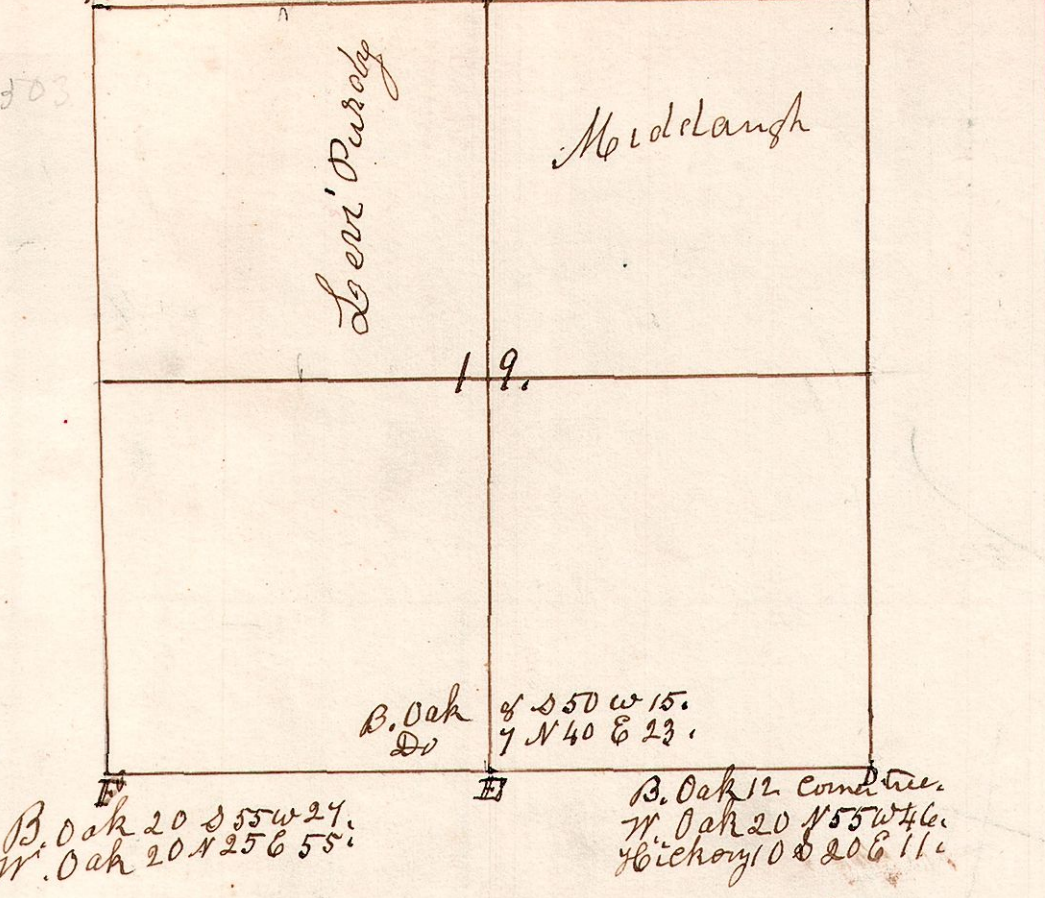 Levi Purdy
Middaugh
19.
B. Oak 8 S 50 W 15.
Do 7 N 40 E 23.
F
E
D
B. Oak 20 S 55 W 27.
W. Oak 20 N 25 E 55.
B. Oak 12 Corner tree.
W. Oak 20 N 55 W 46.
Hickory 10 S 20 E 11.